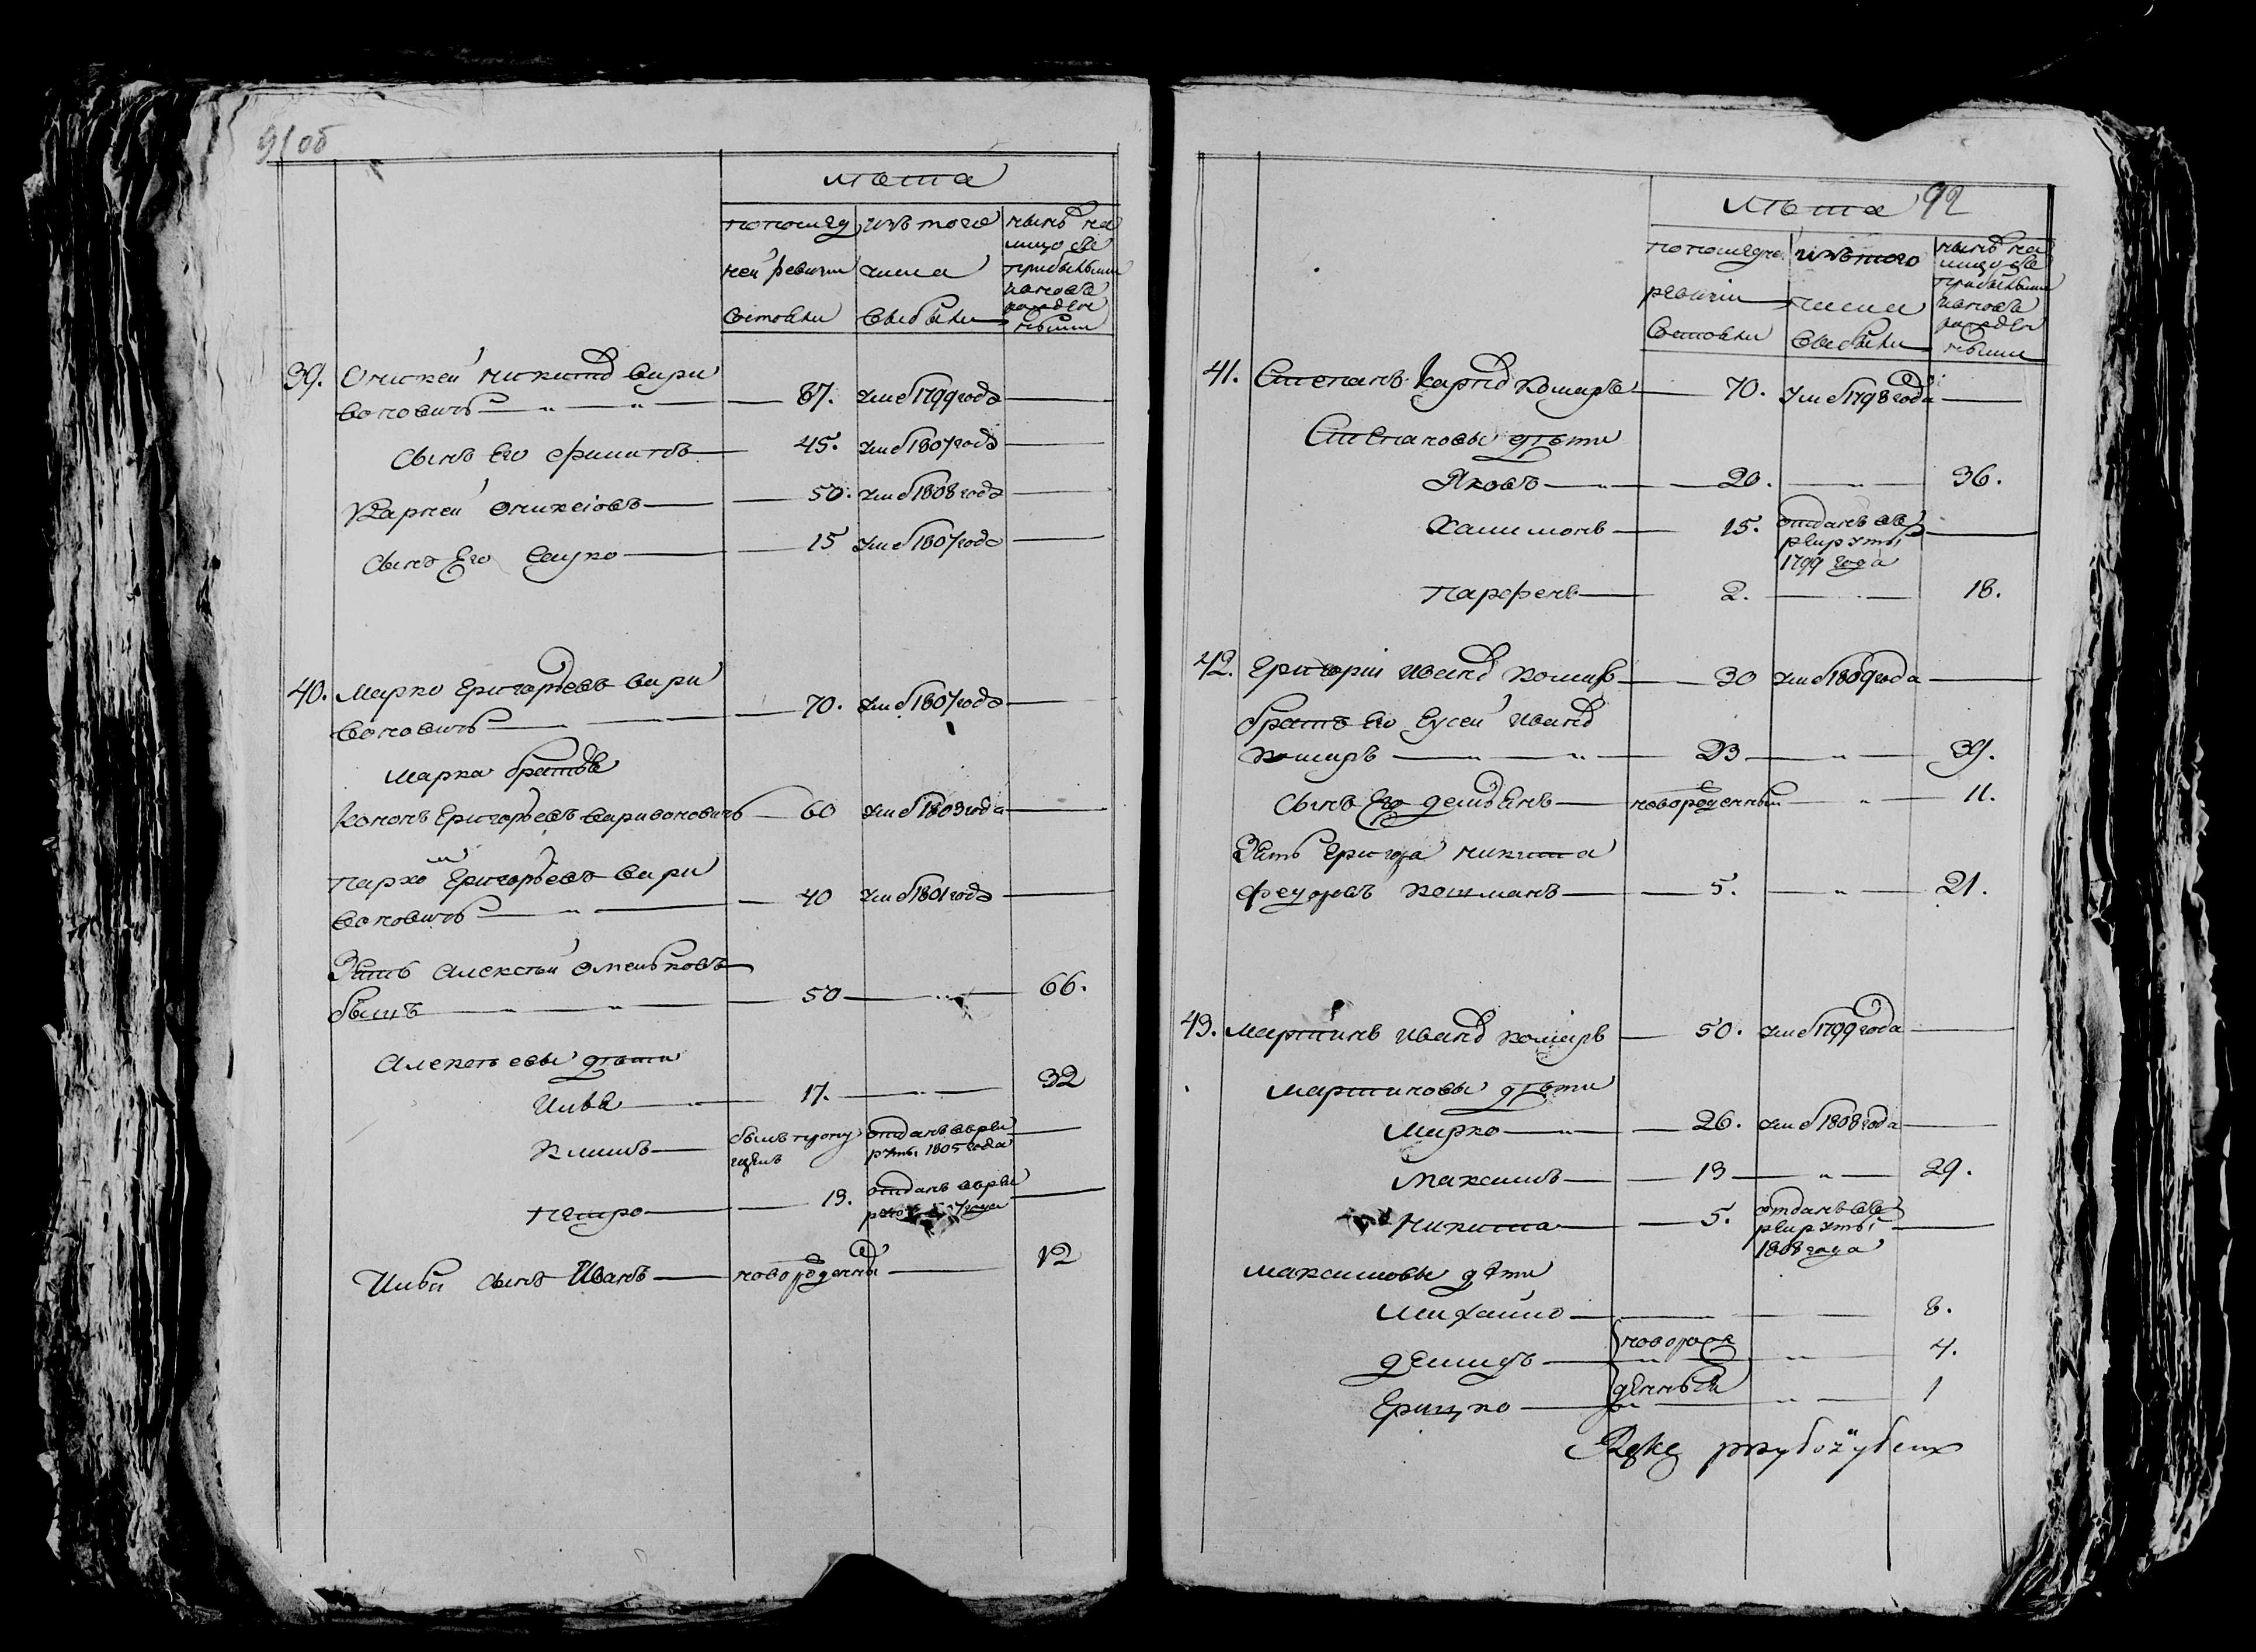 91об
лѣта
по послед
ней ревизіи
состояли
изъ того
числа
выбыли
нынѣ на
лицо съ
прибылыми
и вновь
рожден
ными
39. Оникей Никита Свири
воновичъ 87. умеº 1799 года
сынъ Его Филипъ 45. умеº 1807 года
Карней Оникеіовъ 50. умеº 1808 года
сынъ Его Савко 15 умеº 1807 года
40. Марко Григорьевъ Свири
воновичъ 70. умеº 1807 года
Марка братья
Кононъ Григорьевъ Свиривоновичъ 60 умеº 1803 года
Пархом Григорьевъ Свири
воновичъ 40 умеº 1801 года
Зять Алексѣй Омельковъ
50 66.
Алексѣевы дѣти
Илья 17. 32
Климъ былъ пропу
щенъ отданъ в рек
руты 1805 года
Петро 13. отданъ в рек
Ильи сынъ Иванъ новорожденный 12
лѣта 92
по последне.
ревизіи
состояли
изъ того
числа
выбыли
нынѣ на
лицо съ
прибылыми
и вновь
рожден
ными
41. Степанъ Карпов Комаръ 70. умеº 1798 года
Степановы дѣти
Яковъ 20. 36.
Халимонъ 15. отданъ въ
рекруты
1799 года
Парфенъ 2. 18.
42. Григорій Иванов Комаръ 30 умеº 1809 года
братъ Его Еусей Иванов
Комаръ 23 39.
сынъ Его Демьянъ новорожденный 11.
Зять Григора Никита
Федоровъ Кошманъ 5. 21.
43. Мартинъ Иванов Комаръ 50. умеº 1799 года
Мартиновы дѣти
Марко 26. умеº 1808 года
Максимъ 13 29.
Никита 5. отданъ въ
рекруты
1808 года
Максимовы дѣти
Михайло 8.
Демидъ новорож 4.
Грицко денный 1